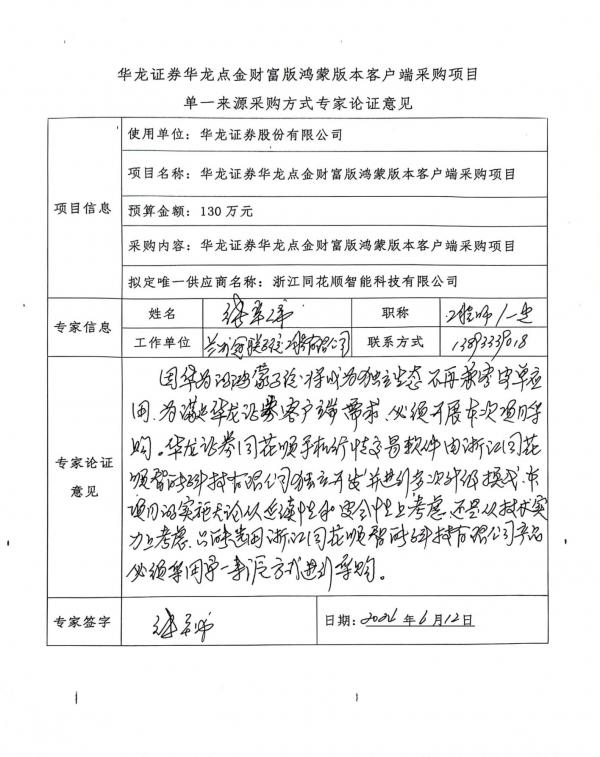 华龙证券华龙点金财富版鸿蒙版本客户端采购项目
单一来源采购方式专家论证意见
项目信息
使用单位：华龙证券股份有限公司
项目名称：华龙证券华龙点金财富版鸿蒙版本客户端采购项目
预算金额：130 万元
采购内容：华龙证券华龙点金财富版鸿蒙版本客户端采购项目
拟定唯一供应商名称：浙江同花顺智能科技有限公司
专家信息
姓名
职称 工程师
工作单位 有限公司
联系方式
专家论证
意见
因华为鸿蒙系统将成为独立生态不再兼容安卓应
用，为满足华龙证券客户端需求，必须开展本次项目采
购。华龙证券同花顺手机行情交易软件由浙江同花
顺智能科技有限公司独立开发并进行多次升级换代，本
项目的实施无论从延续性和安全性上考虑，还是从技术实
力上考虑，只能选用浙江同花顺智能科技有限公司产品
必须采用单一来源方式进行采购。
专家签字
日期：2024 年 6 月 12 日